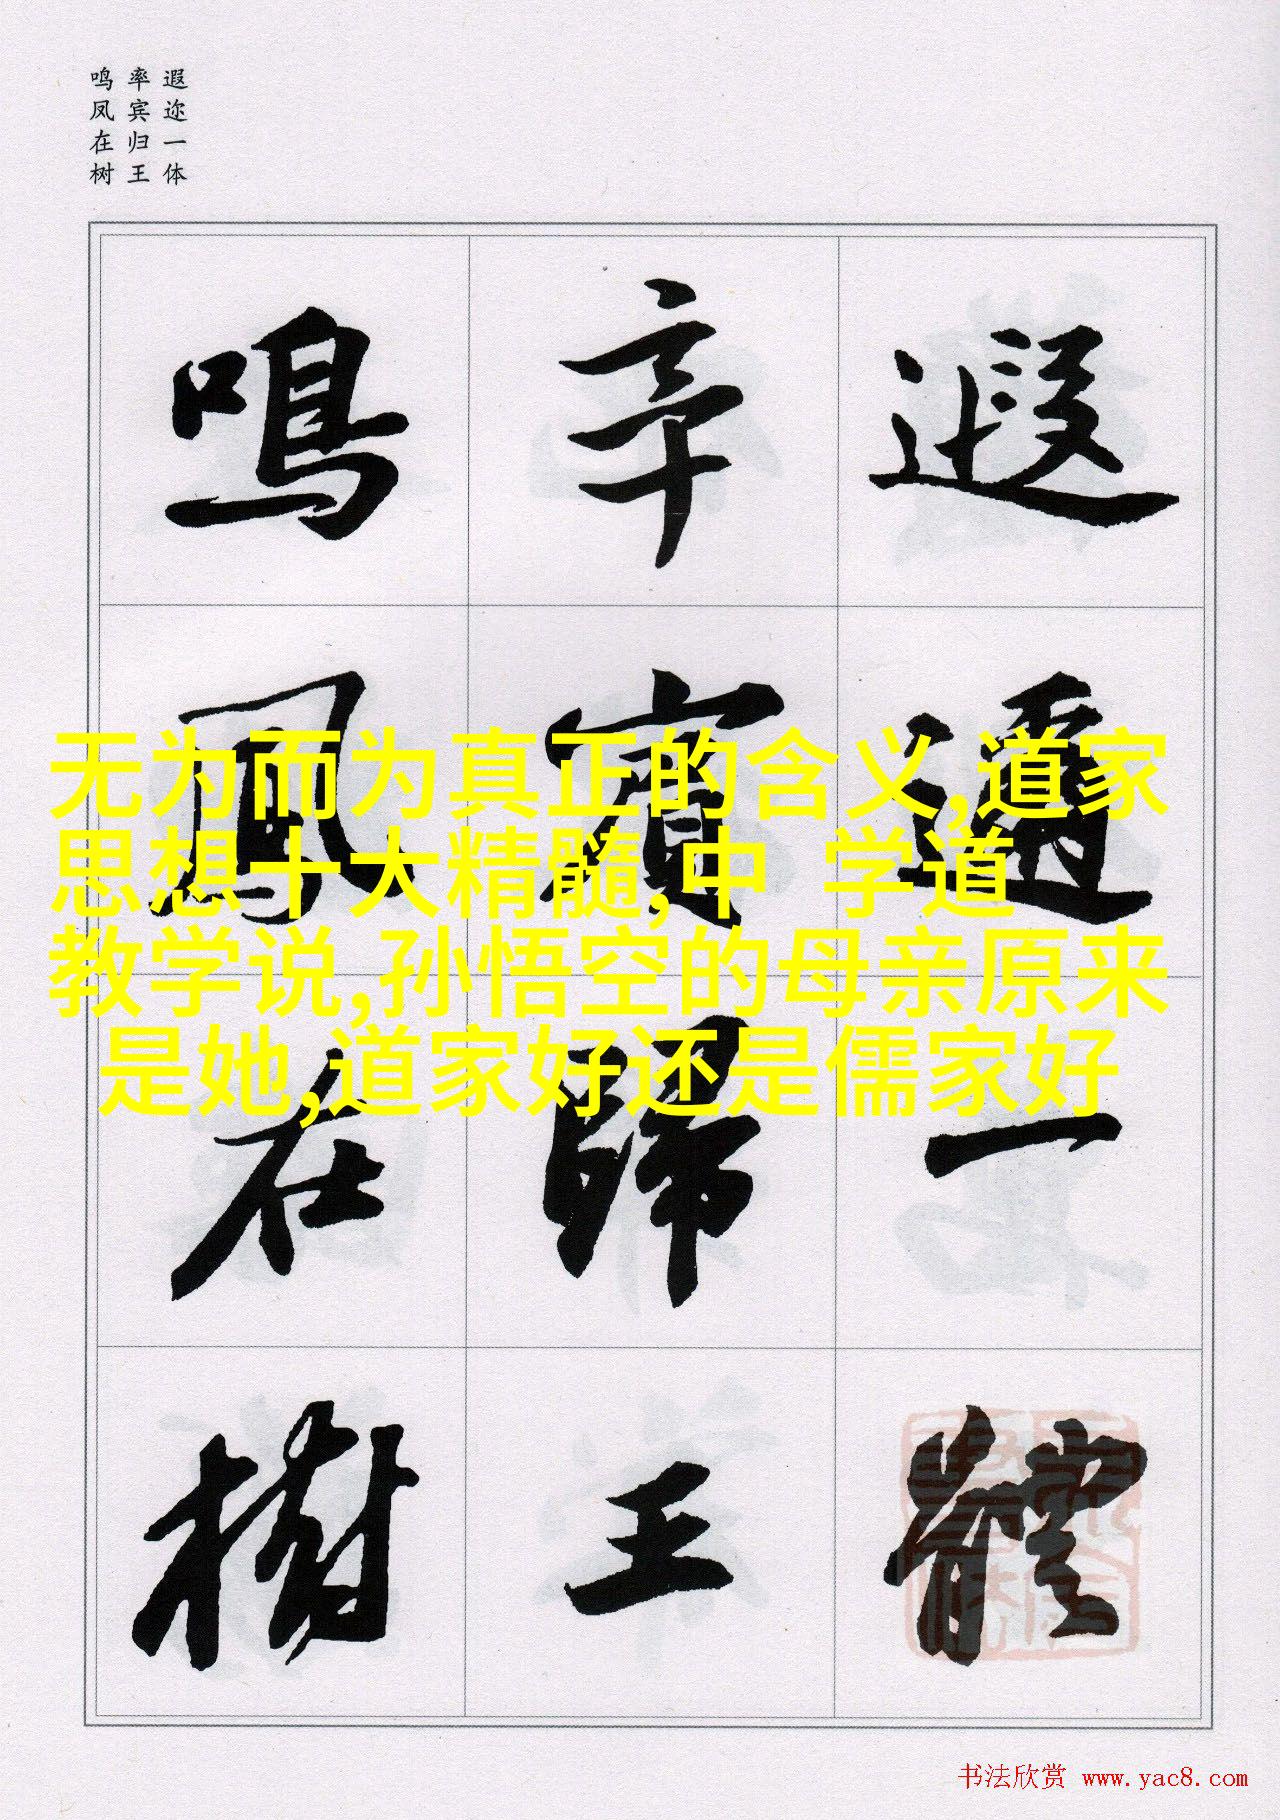 遐迩一体
率宾归王
鸣凤在树
遐邇一體
率賓歸王
鳴鳳在樹
无为而为真正的含义,道家
思想十大精髓,中 学道
教学说,孙悟空的母亲原来
是她,道家好还是儒家好
书法欣赏 www.yac8.com